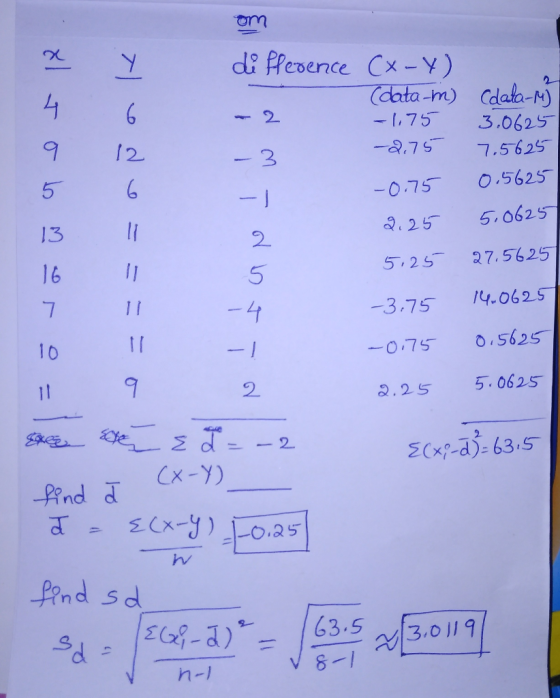 om
x Y difference (x-y)
(data-m) (data-M)²
4 6 -2 -1.75 3.0625
9 12 -3 -2.75 7.5625
5 6 -1 -0.75 0.5625
13 11 2 2.25 5.0625
16 11 5 5.25 27.5625
7 11 -4 -3.75 14.0625
10 11 -1 -0.75 0.5625
11 9 2 2.25 5.0625
Σ d̄ = -2 Σ(xi-d̄)²=63.5
(x-y)
find d̄
d̄ = Σ(x-y)/n = -0.25
find sd
sd = √(Σ(xi-d̄)²/(n-1)) = √(63.5/(8-1)) ≈ 3.0119